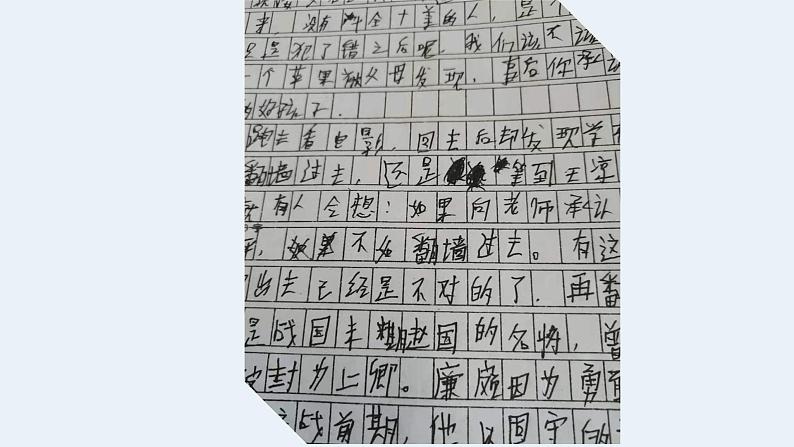 来,没有十全十美的人,是
是犯了错之后呢,我们该不该
一个苹果被父母发现,事后你承认
的好孩子.
跑去看电影,回去后却发现学
翻墙过去,还是等到天亮
有人会想:如果向老师承认
,如果不如翻墙过去。有这
出去已经是不对的了.再翻
是战国末期赵国的名将,曾
封为上卿。廉颇因为勇
战前期,他以固守的